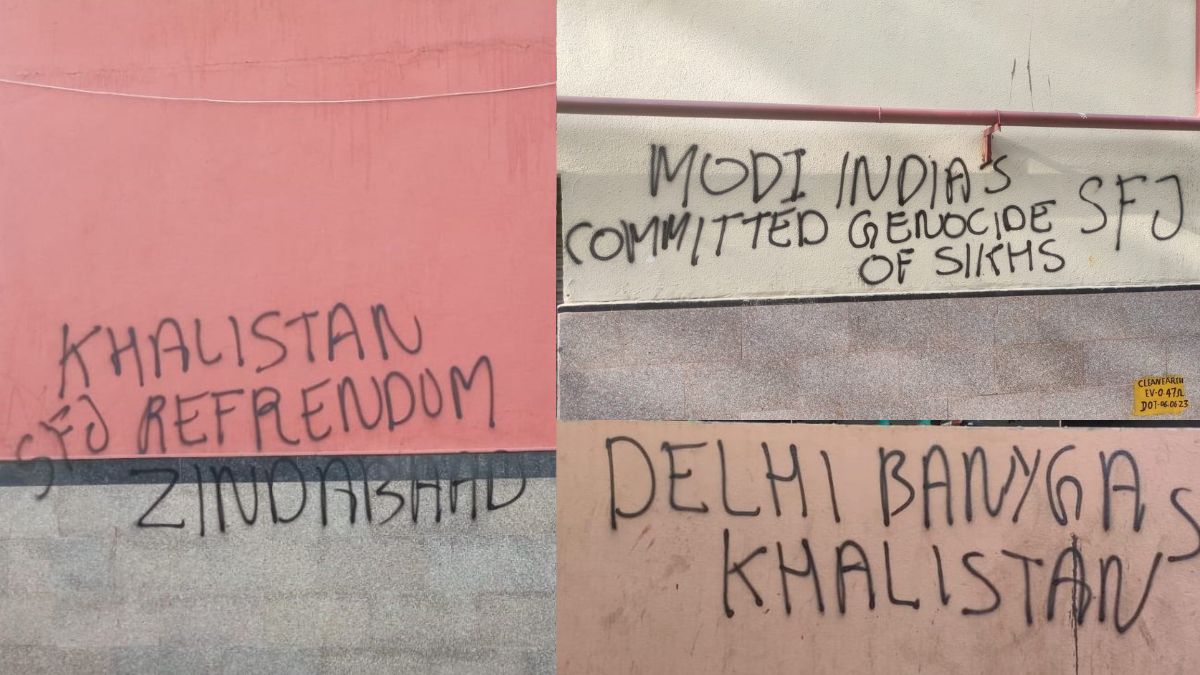 KHALISTAN
SFJ REFRENDUM
ZINDABAAD
MODI INDIA'S
COMMITTED GENOCIDE SFJ
OF SIKHS
CLEAN EARTH
EV-0.47Ω
DOT-06.06.23
DELHI BANYGA S
KHALISTAN